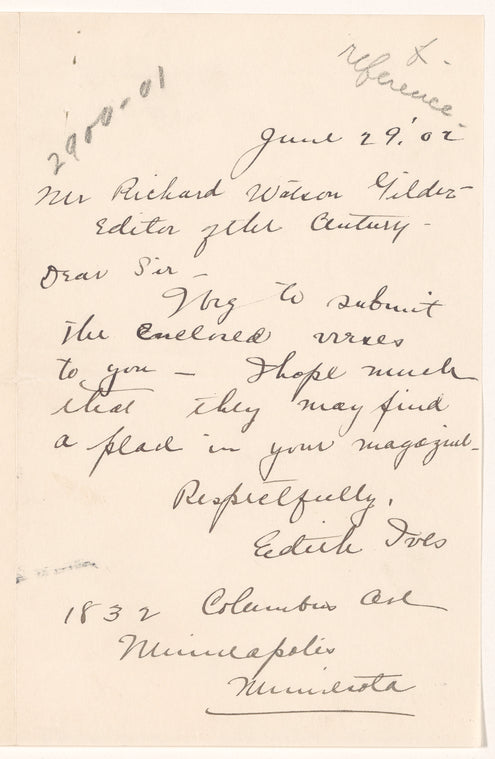 & -
reference -
2900-01
June 29.' 02
Mr Richard Watson Gilder
Editor of the Century -
Dear Sir -
I beg to submit
the enclosed verses
to you - I hope much
that they may find
a place in your magazine -
Respectfully,
Edith Ives
1832 Columbus Ave
Minneapolis
Minnesota